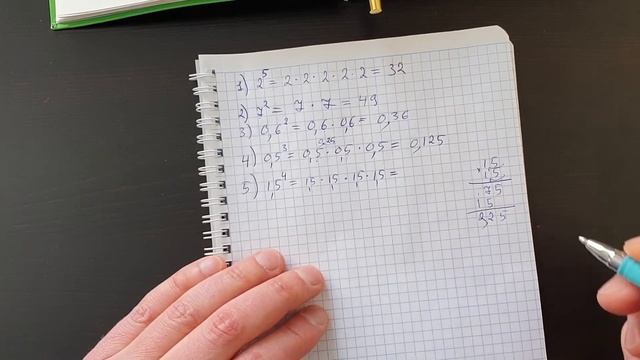 1) 2⁵ = 2 · 2 · 2 · 2 · 2 = 32
2) 7² = 7 · 7 = 49
3) 0,6² = 0,6 · 0,6 = 0,36
0,25
4) 0,5³ = 0,5 · 0,5 · 0,5 = 0,125
5) 1,5⁴ = 1,5 · 1,5 · 1,5 · 1,5 =
1,5
× 1,5
75
15
2,25